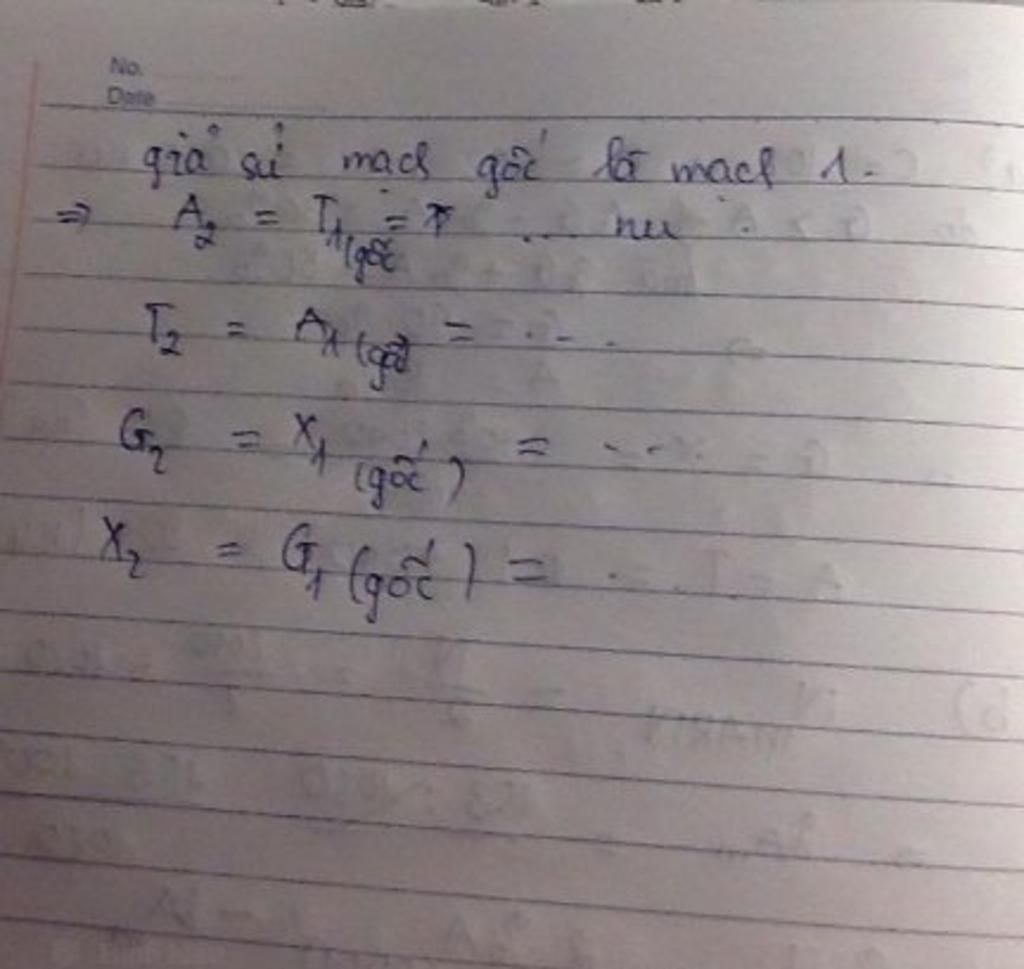 No.
Date
giả sử mạch gốc là mạch 1.
=> A2 = T1 (gốc = ... nu
T2 = A1 (gốc) = ...
G2 = X1 (gốc) = ...
X2 = G1 (gốc) = ...